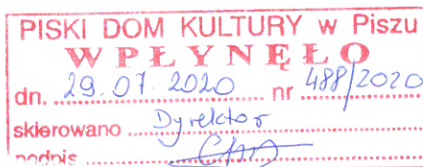 PISKI DOM KULTURY w Piszu
WPŁYNĘŁO
dn. 29.07.2020 nr 488/2020
skierowano Dyrektor
podpis